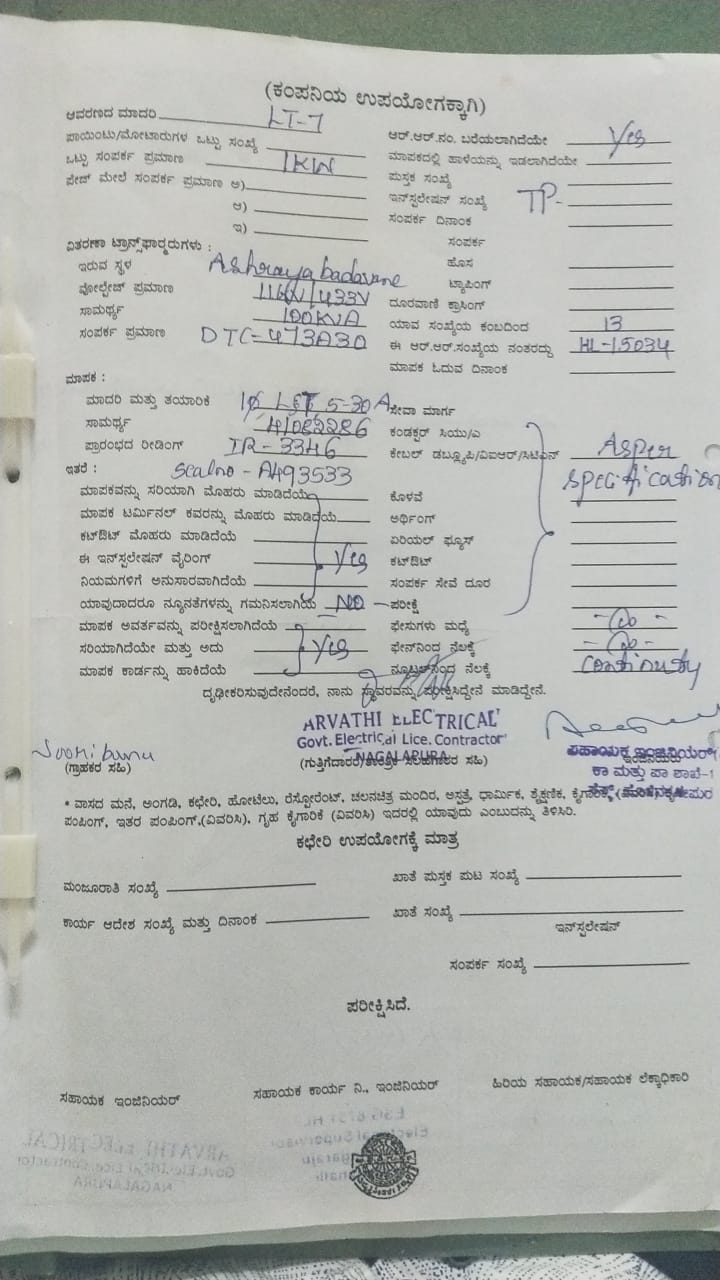 (ಕಂಪನಿಯ ಉಪಯೋಗಕ್ಕಾಗಿ)
ಆವರಣದ ಮಾದರಿ LT-7
ಪಾಯಿಂಟು/ಮೋಟಾರುಗಳ ಒಟ್ಟು ಸಂಖ್ಯೆ
ಒಟ್ಟು ಸಂಪರ್ಕ ಪ್ರಮಾಣ 1KW
ಫೇಜ್ ಮೇಲೆ ಸಂಪರ್ಕ ಪ್ರಮಾಣ ಅ)
ಆ)
ಇ)
ಆರ್.ಆರ್.ನಂ. ಬರೆಯಲಾಗಿದೆಯೇ Yes
ಮಾಪಕದಲ್ಲಿ ಹಾಳೆಯನ್ನು ಇಡಲಾಗಿದೆಯೇ
ಪುಸ್ತಕ ಸಂಖ್ಯೆ
ಇನ್‌ಸ್ಟಲೇಷನ್ ಸಂಖ್ಯೆ TP-
ಸಂಪರ್ಕ ದಿನಾಂಕ
ವಿತರಣಾ ಟ್ರಾನ್ಸ್‌ಫಾರ್ಮರುಗಳು :
ಇರುವ ಸ್ಥಳ Ashraya badavane
ವೋಲ್ಟೇಜ್ ಪ್ರಮಾಣ 11KV/433V
ಸಾಮರ್ಥ್ಯ 100KVA
ಸಂಪರ್ಕ ಪ್ರಮಾಣ DTC-473A30
ಸಂಪರ್ಕ
ಹೊಸ
ಟ್ಯಾಪಿಂಗ್
ದೂರವಾಣಿ ಕ್ರಾಸಿಂಗ್
ಯಾವ ಸಂಖ್ಯೆಯ ಕಂಬದಿಂದ 13
ಈ ಆರ್.ಆರ್.ಸಂಖ್ಯೆಯ ನಂತರದ್ದು HL-15034
ಮಾಪಕ ಓದುವ ದಿನಾಂಕ
ಮಾಪಕ :
ಮಾದರಿ ಮತ್ತು ತಯಾರಿಕೆ 1ϕ L&T 5-30A
ಸಾಮರ್ಥ್ಯ 41082286
ಪ್ರಾರಂಭದ ರೀಡಿಂಗ್ IR-3346
ಇತರೆ : Scalno-A493533
ಮಾಪಕವನ್ನು ಸರಿಯಾಗಿ ಮೊಹರು ಮಾಡಿದೆಯೆ
ಮಾಪಕ ಟರ್ಮಿನಲ್ ಕವರನ್ನು ಮೊಹರು ಮಾಡಿದೆಯೆ
ಕಟ್‌ಔಟ್ ಮೊಹರು ಮಾಡಿದೆಯೆ
ಈ ಇನ್‌ಸ್ಟಲೇಷನ್ ವೈರಿಂಗ್ Yes
ನಿಯಮಗಳಿಗೆ ಅನುಸಾರವಾಗಿದೆಯೆ
ಯಾವುದಾದರೂ ನ್ಯೂನತೆಗಳನ್ನು ಗಮನಿಸಲಾಗಿದೆ NO
ಮಾಪಕ ಅವರ್ತವನ್ನು ಪರೀಕ್ಷಿಸಲಾಗಿದೆಯೆ
ಸರಿಯಾಗಿದೆಯೇ ಮತ್ತು ಅದು Yes
ಮಾಪಕ ಕಾರ್ಡನ್ನು ಹಾಕಿದೆಯೆ
ಸೇವಾ ಮಾರ್ಗ
ಕಂಡಕ್ಟರ್ ಸಿಯು/ಎ
ಕೇಬಲ್ ಡಬ್ಲ್ಯೂಪಿ/ವಿಐಆರ್/ಸಿಟಿಎಸ್ Asper
Specification
ಕೊಳವೆ
ಅರ್ಥಿಂಗ್
ಏರಿಯಲ್ ಫ್ಯೂಸ್
ಕಟ್‌ಔಟ್
ಸಂಪರ್ಕ ಸೇವೆ ದೂರ
ಪರೀಕ್ಷೆ
ಫೇಸುಗಳು ಮಧ್ಯೆ
ಫೇಸ್‌ನಿಂದ ನೆಲಕ್ಕೆ
ನ್ಯೂಟ್ರಲ್‌ನಿಂದ ನೆಲಕ್ಕೆ Continuty
ದೃಢೀಕರಿಸುವುದೇನೆಂದರೆ, ನಾನು ಸ್ಥಾವರವನ್ನು ಪರೀಕ್ಷಿಸಿದ್ದೇನೆ ಮಾಡಿದ್ದೇನೆ.
ARVATHI ELECTRICAL
Govt. Electrical Lice. Contractor
NAGALAPURA
(ಗ್ರಾಹಕರ ಸಹಿ)
ಸಹಾಯಕ ಇಂಜಿನಿಯರ್
ಕಾ ಮತ್ತು ಪಾ ಶಾಖೆ-1
* ವಾಸದ ಮನೆ, ಅಂಗಡಿ, ಕಛೇರಿ, ಹೋಟೆಲು, ರೆಸ್ಟೋರೆಂಟ್, ಚಲನಚಿತ್ರ ಮಂದಿರ, ಆಸ್ಪತ್ರೆ, ಧಾರ್ಮಿಕ, ಶೈಕ್ಷಣಿಕ, ಕೈಗಾರಿಕೆ,
ಪಂಪಿಂಗ್, ಇತರ ಪಂಪಿಂಗ್,(ವಿವರಿಸಿ), ಗೃಹ ಕೈಗಾರಿಕೆ (ವಿವರಿಸಿ) ಇದರಲ್ಲಿ ಯಾವುದು ಎಂಬುದನ್ನು ತಿಳಿಸಿರಿ.
ಕಛೇರಿ ಉಪಯೋಗಕ್ಕೆ ಮಾತ್ರ
ಮಂಜೂರಾತಿ ಸಂಖ್ಯೆ
ಖಾತೆ ಪುಸ್ತಕ ಪುಟ ಸಂಖ್ಯೆ
ಕಾರ್ಯ ಆದೇಶ ಸಂಖ್ಯೆ ಮತ್ತು ದಿನಾಂಕ
ಖಾತೆ ಸಂಖ್ಯೆ
ಇನ್‌ಸ್ಟಲೇಷನ್
ಸಂಪರ್ಕ ಸಂಖ್ಯೆ
ಪರೀಕ್ಷಿಸಿದೆ.
ಸಹಾಯಕ ಇಂಜಿನಿಯರ್
ಸಹಾಯಕ ಕಾರ್ಯ ನಿ., ಇಂಜಿನಿಯರ್
ಹಿರಿಯ ಸಹಾಯಕ/ಸಹಾಯಕ ಲೆಕ್ಕಾಧಿಕಾರಿ